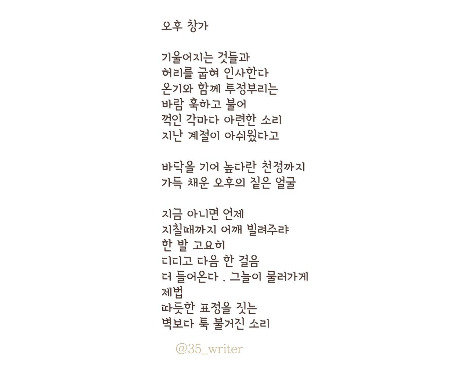 오후 창가
기울어지는 것들과
허리를 굽혀 인사한다
온기와 함께 투정부리는
바람 훅하고 불어
꺽인 각마다 아련한 소리
지난 계절이 아쉬웠다고
바닥을 기어 높다란 천정까지
가득 채운 오후의 짙은 얼굴
지금 아니면 언제
지칠때까지 어깨 빌려주랴
한 발 고요히
디디고 다음 한 걸음
더 들어온다 . 그늘이 물러가게
제법
따듯한 표정을 짓는
벽보다 툭 불거진 소리
@35_writer